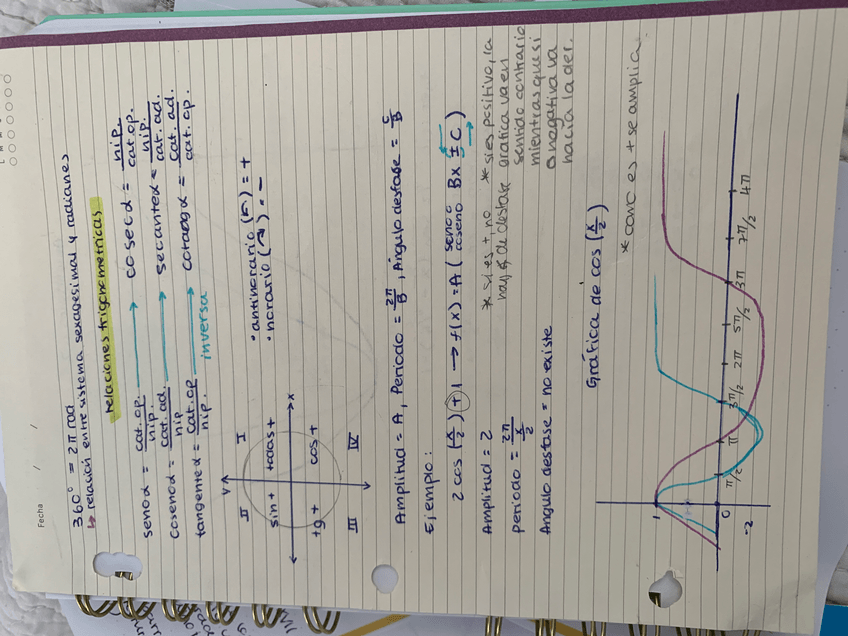 Fecha / /
360° = 2π rad
↳ relación entre sistema sexagesimal y radianes
relaciones trigonometricas
seno α = cat.op. / hip. → cosec α = hip. / cat.op.
coseno α = cat.ad. / hip → secante α = hip. / cat.ad.
tangente α = cat.op / hip. → cotang α = cat.ad. / cat.op.
inversa
y
II I
sin + todas +
x
tg + cos +
III IV
• antihorario (↶) = +
• horario (↷) = -
Amplitud = A, Periodo = 2π/B, Ángulo desfase = C/B
Ejemplo:
2 cos (x/2) + 1 → f(x) = A ( seno o coseno Bx ± C)
Amplitud = 2
Periodo = 2π / x/2
Angulo desfase = no existe
* si es +, no
hay ∢ de desfase
* si es positivo, la
grafica va en
sentido contrario
mientras que si
es negativa va
hacia la der.
Gráfica de cos (x/2)
* como es + se amplia.
1
0 π/2 π 3π/2 2π 5π/2 3π 7π/2 4π
-2